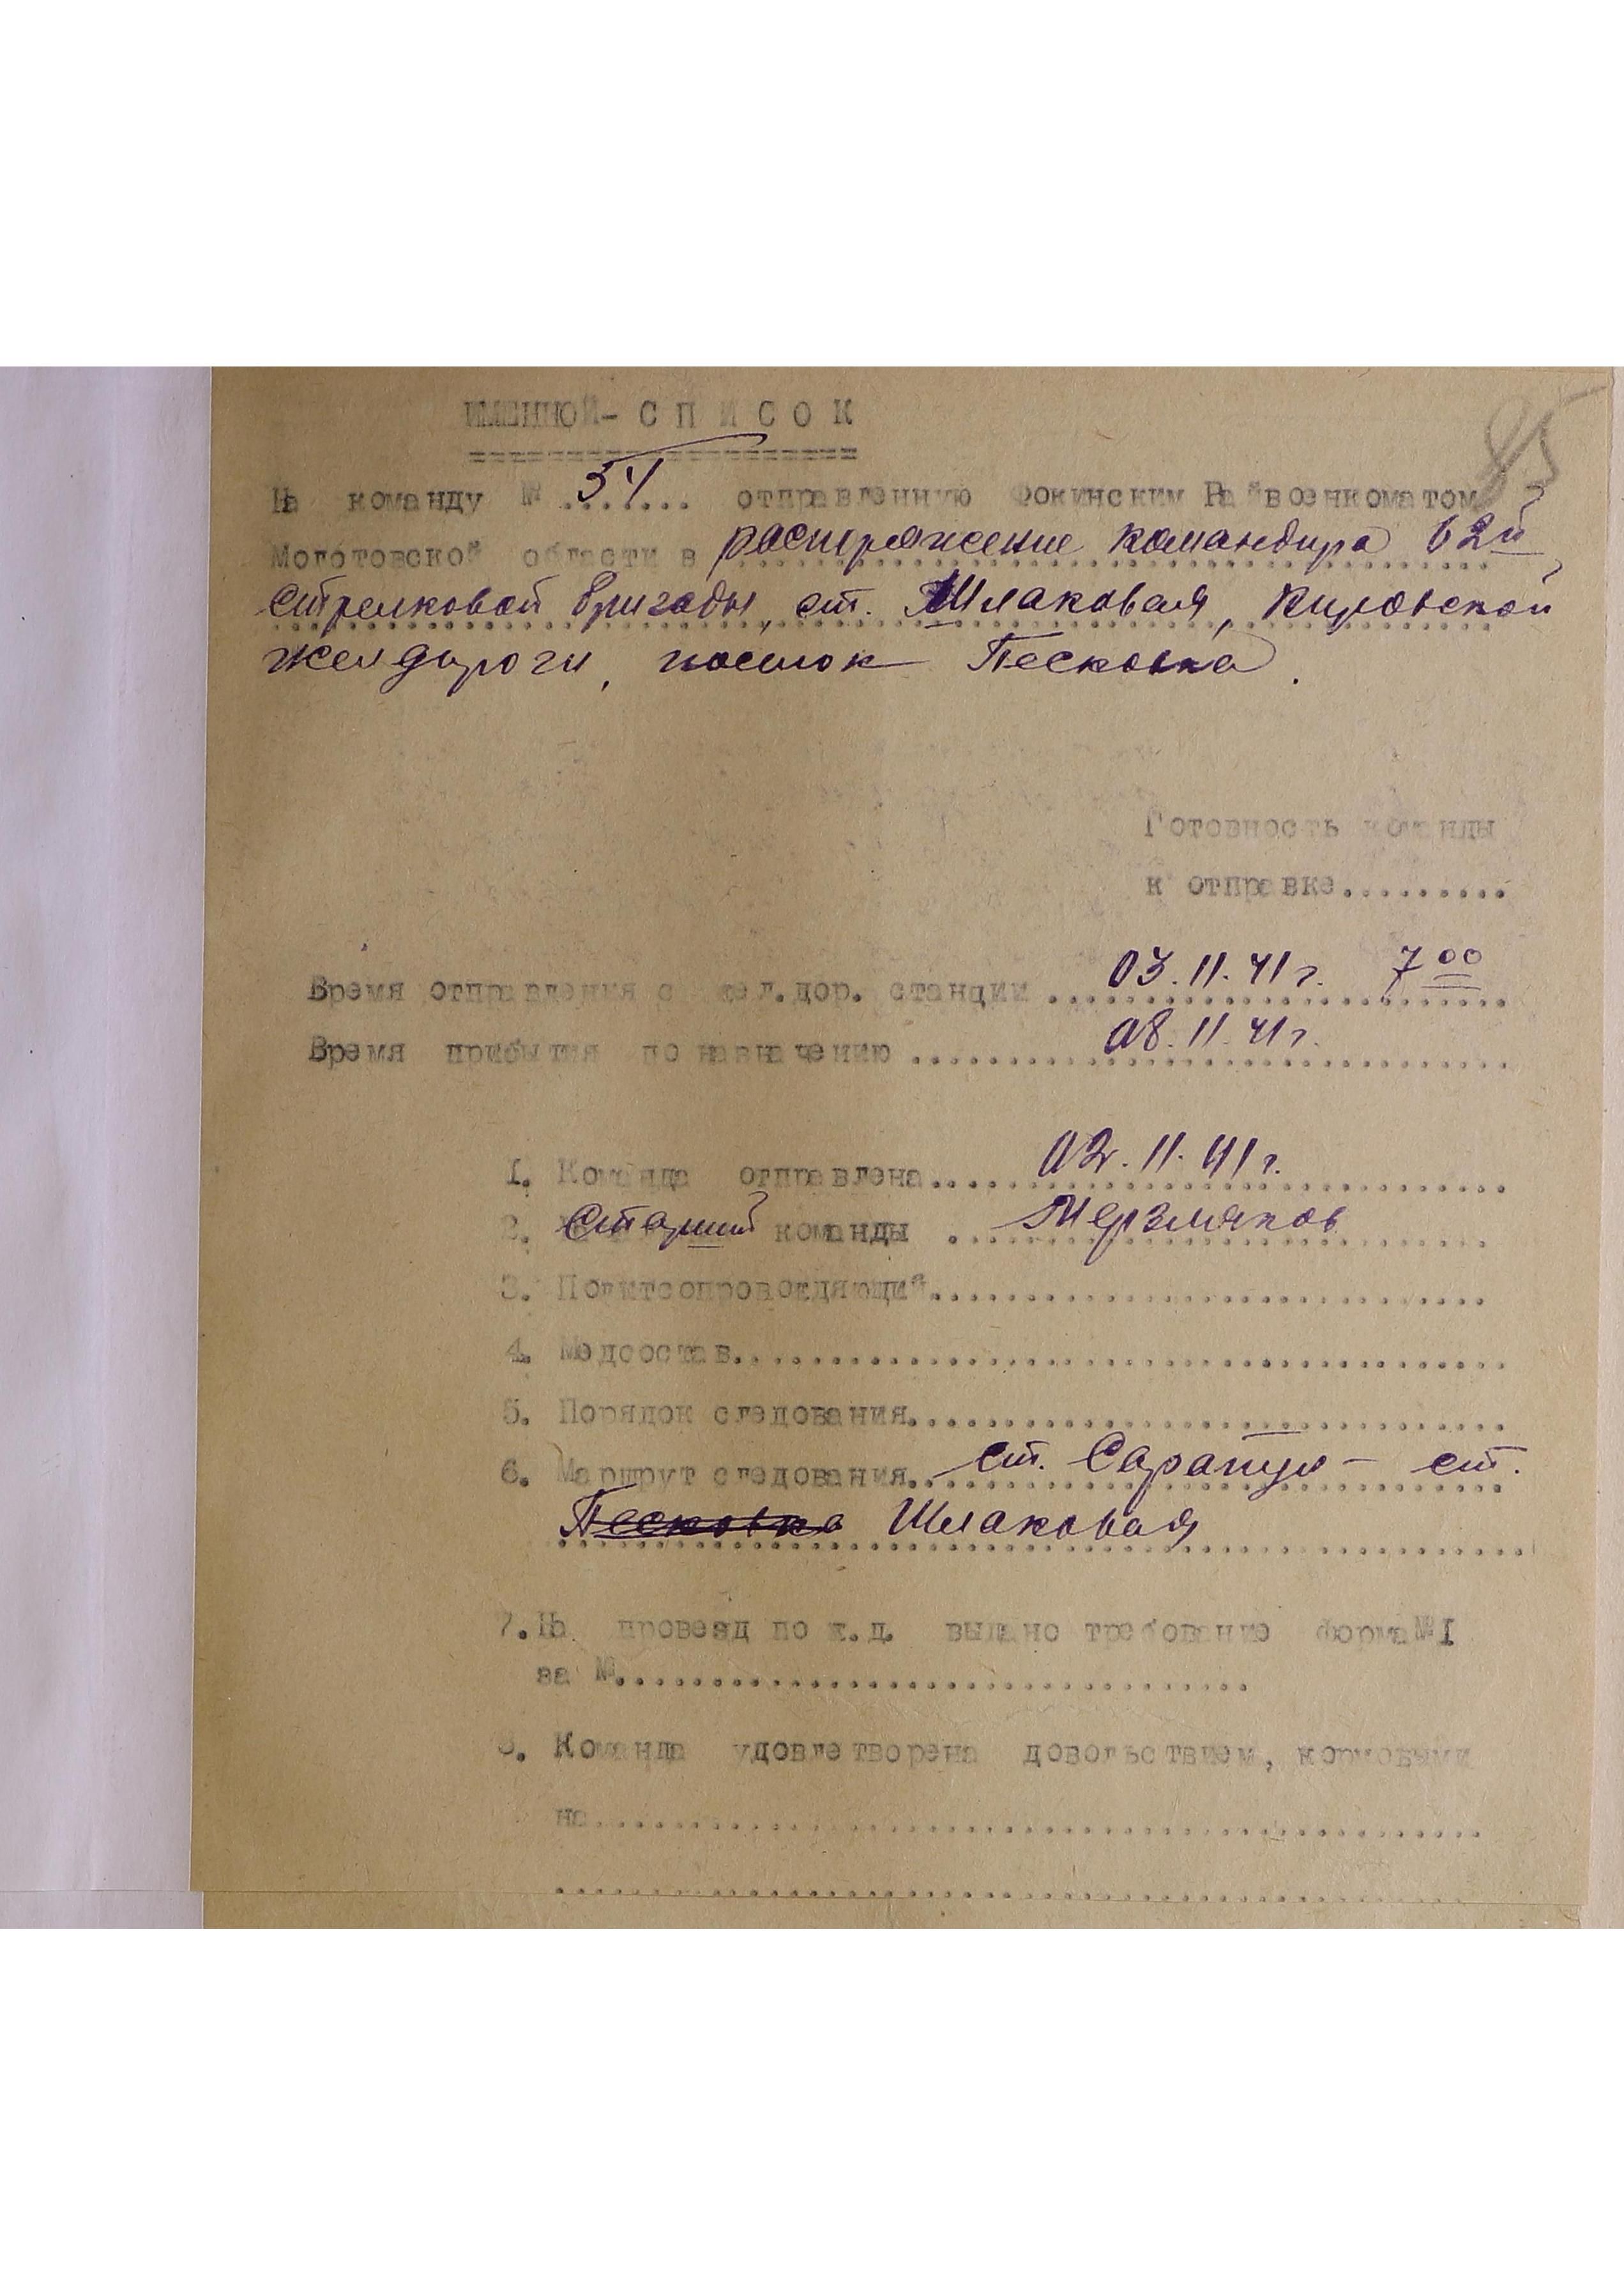 85
ИМЕННОЙ- С П И С О К
На команду № 54 отправленную Фокинским Райвоенкоматом
Молотовской области в распоряжение командира 62й
стрелковой бригады, ст. Шлаковая, Кировской
жел дороги, поселок Песковка.
Готовность команды
к отправке.........
Время отправления с жел.дор. станции 03.11.41г. 7 00
Время прибытия по назначению 08.11.41г.
1. Команда отправлена 02.11.41г.
2. Старший команды Мерзляков
3. Политсопровождающий
4. Медсостав
5. Порядок следования
6. Маршрут следования ст. Сарапул - ст.
Песковка Шлаковая
7. На провезд по ж.д. выдано требование форма №1
за №
8. Команда удовлетворена довольствием, кормовыми
на